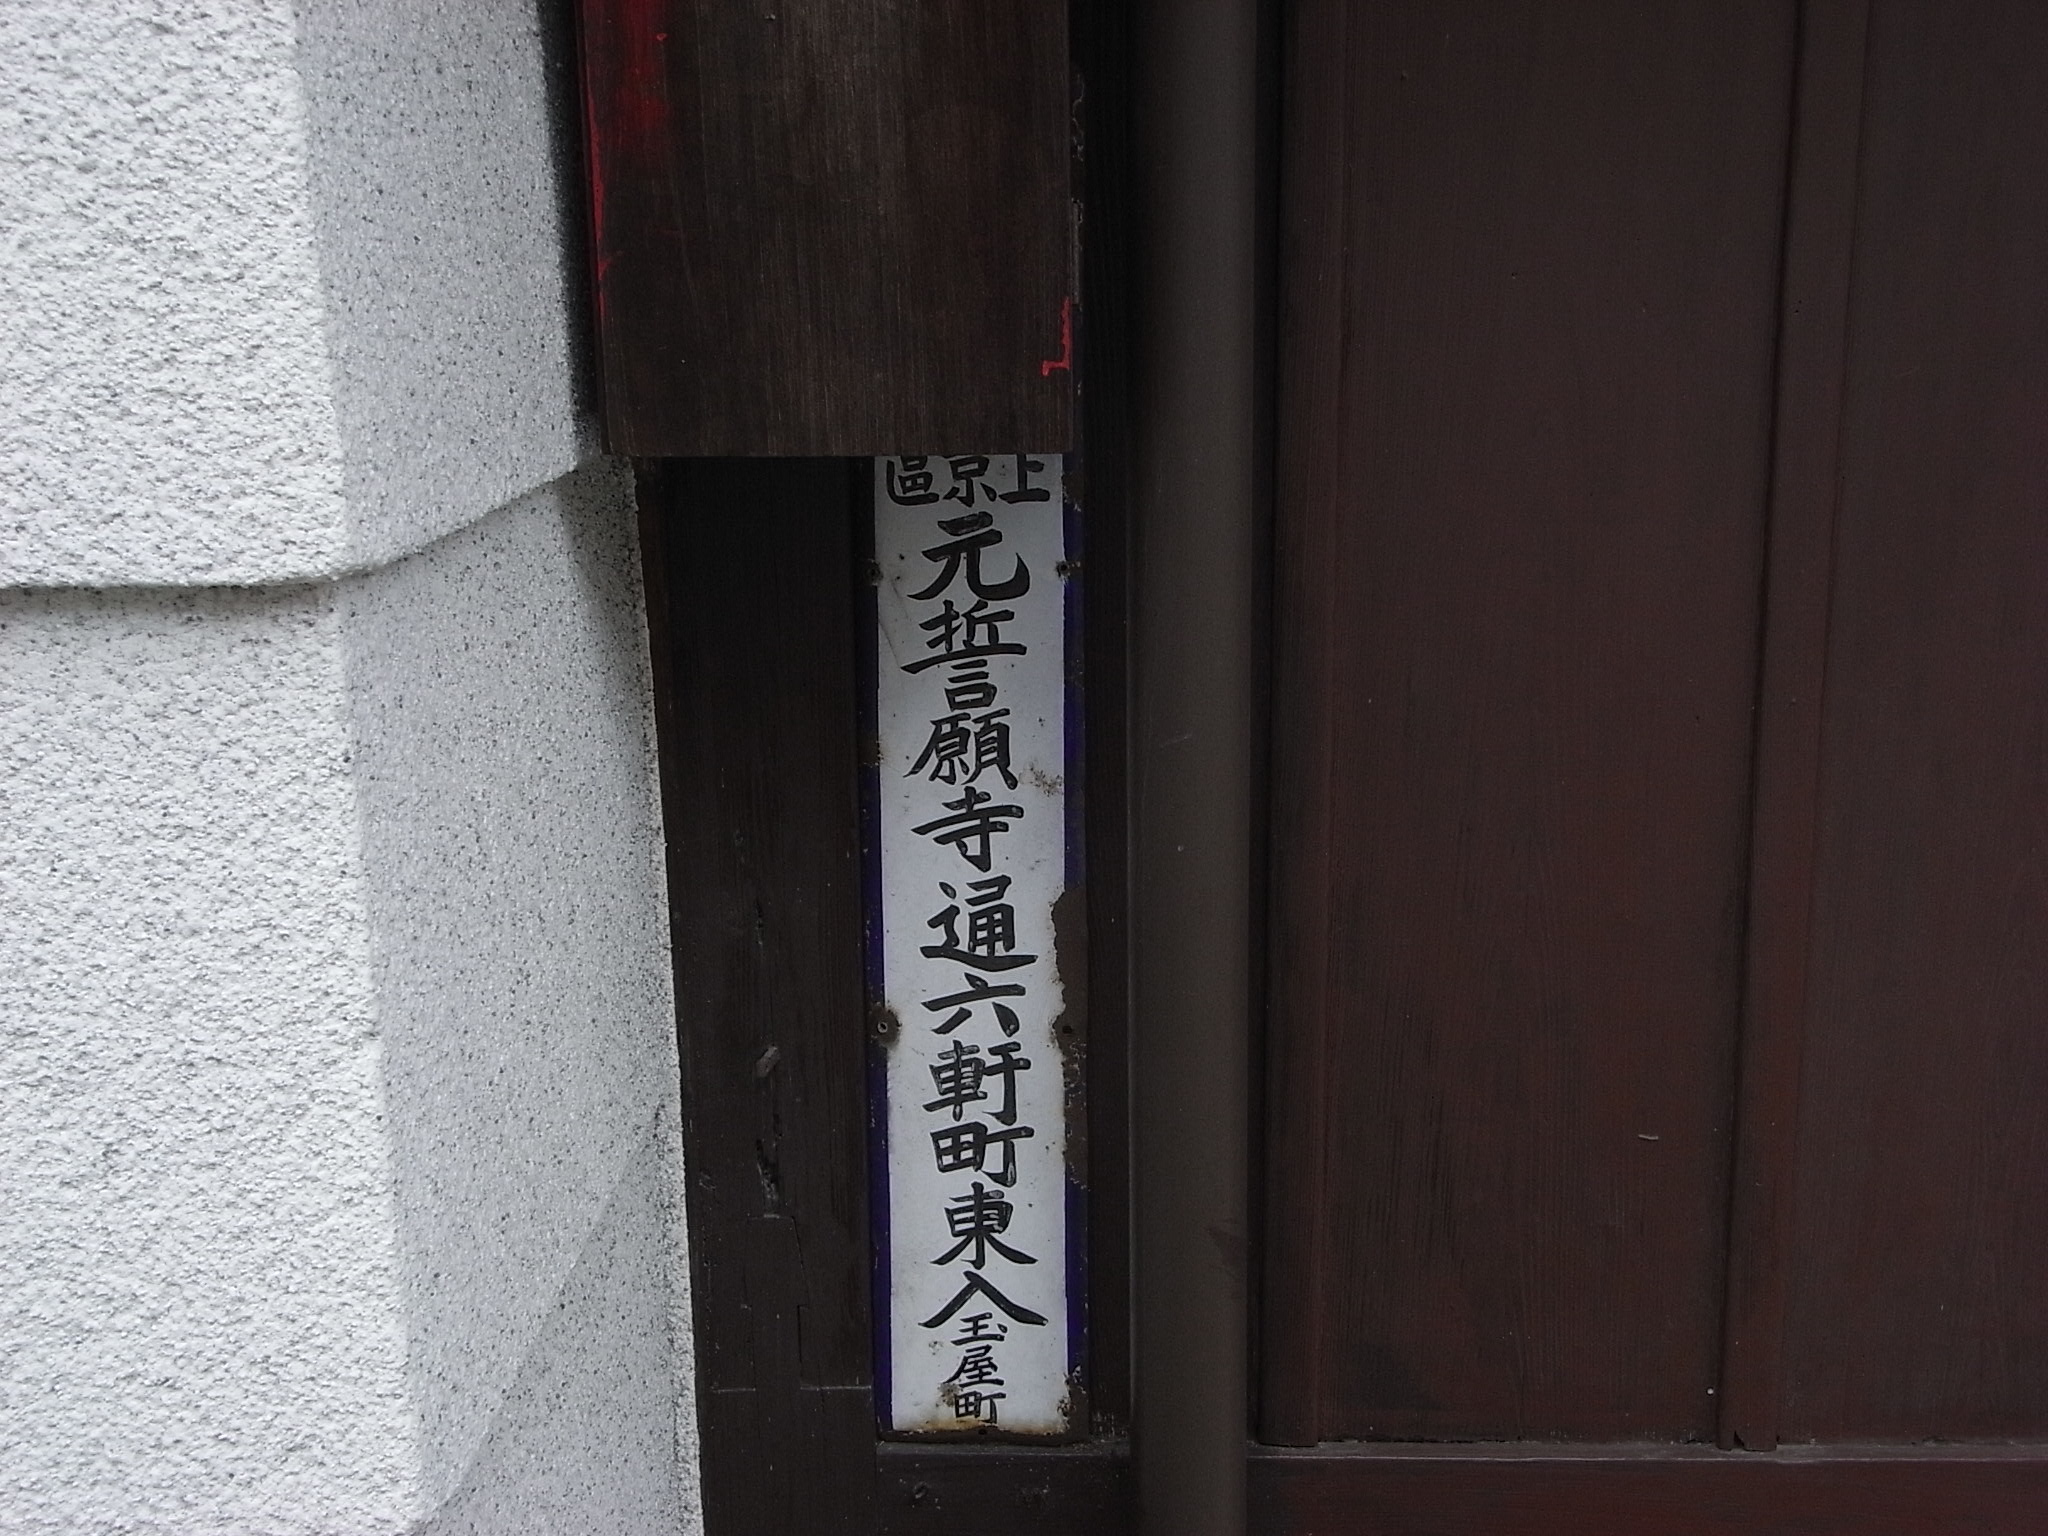 上京區
元誓願寺通六軒町東入玉屋町